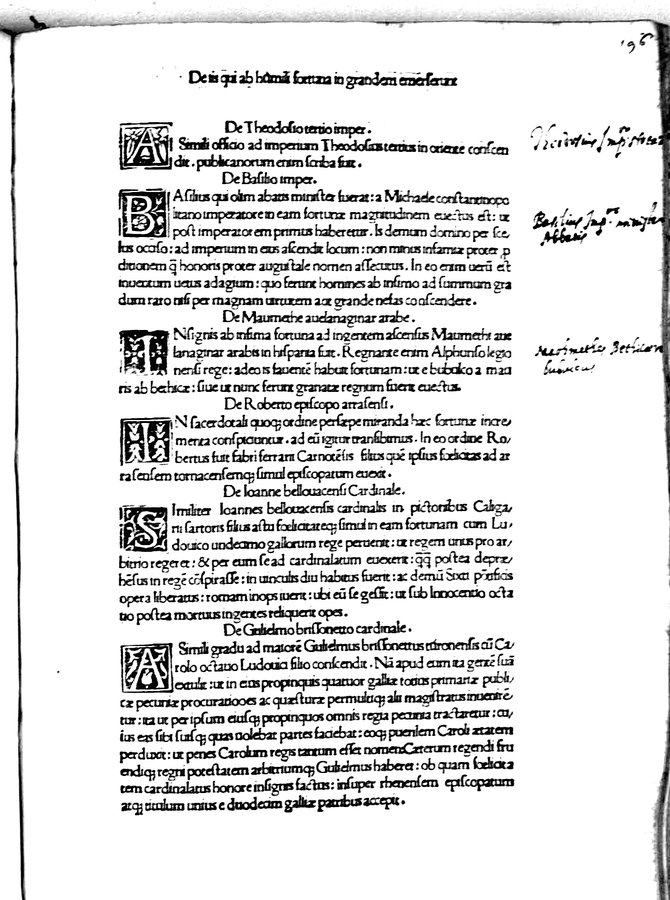 196
De iis qui ab humili fortuna in grandem emerserunt
De Theodosio tertio imper.
A Simili officio ad imperium Theodosius tertius in oriente conscen
dit. publicanorum enim scriba fuit.
De Basilio imper.
BAsilius qui olim abatis minister fuerat: a Michaele constantinopo
litano imperatore in eam fortunæ magnitudinem euectus est: ut
post imperatorem primus haberetur. Is demum domino per sce
lus occiso: ad imperium in eius ascendit locum: non minus infamiæ propter p
ditionem q̃ honoris propter augustale nomen assecutus. In eo enim uerũ est
inuentum uetus adagium: quo ferunt homines ab infimo ad summum gra
dum raro nisi per magnam uirtutem aut grande nefas conscendere.
De Maumethe auelanaginar arabe.
INsignis ab infima fortuna ad ingentem ascensus Maumethi aue
lanaginar arabis in hispania fuit. Regnante enim Alphonso legio
nensi rege: adeo is fauentẽ habuit fortunam: ut e bubulco a mau
ris ab bethicæ: siue ut nunc ferunt granatæ regnum fuerit euectus.
De Roberto episcopo arrasensi.
IN sacerdotali quoq; ordine persæpe miranda hæc fortunæ incre,
menta conspiciuntur. ad eũ igitur transibimus. In eo ordine Ro,
bertus fuit fabri ferrarii Carnotẽsis filius quẽ ipsius foelicitas ad ar
rasensem tornacensemq; simul episcopatum euexit.
De Ioanne bellouacensi Cardinale.
SImiliter Ioannes bellouacensis cardinalis in pictoribus Caliga,
rii sartoris filius astu foelicitateq; simul in eam fortunam cum Lu,
douico undecimo gallorum rege peruenit: ut regem unius pro ar,
bitrio regeret: & per eum se ad cardinalatum euexerit: q̃q̃ postea depræ,
hẽsus in regẽ cõspirasse: in uinculis diu habitus fuerit: ac demũ Sixti põtificis
opera liberatus: romam inops iuerit: ubi eũ se gessit: ut sub Innocentio octa
uo postea mortuus ingentes reliquerit opes.
De Gulielmo brissonetto cardinale.
A Simili gradu ad maiorẽ Gulielmus brissonettus turonensis cũ Ca,
rolo octauo Ludouici filio conscendit. Nã apud eum ita gentẽ suã
extulit: ut in eius propinquis quatuor galliæ totius primariæ publi,
cæ pecuniæ procurationes ac quæsturæ permultiq; alii magistratus inuenirẽ
tur: ita ut per ipsum eiusq; propinquos omnis regia pecunia tractaretur: cu,
ius eas sibi suisq; quas uolebat partes faciebat: eoq; puerilem Caroli ætatem
perduxit: ut penes Carolum regis tantum esset nomen Cæterum regendi fru
endiq; regni potestatem arbitriumq; Gulielmus haberet: ob quam foelicita
tem cardinalatus honore insignis factus: insuper rhenensem episcopatum
atq; titulum unius e duodecim galliæ patribus accepit.
Basilius Imp. minister
Abbatis